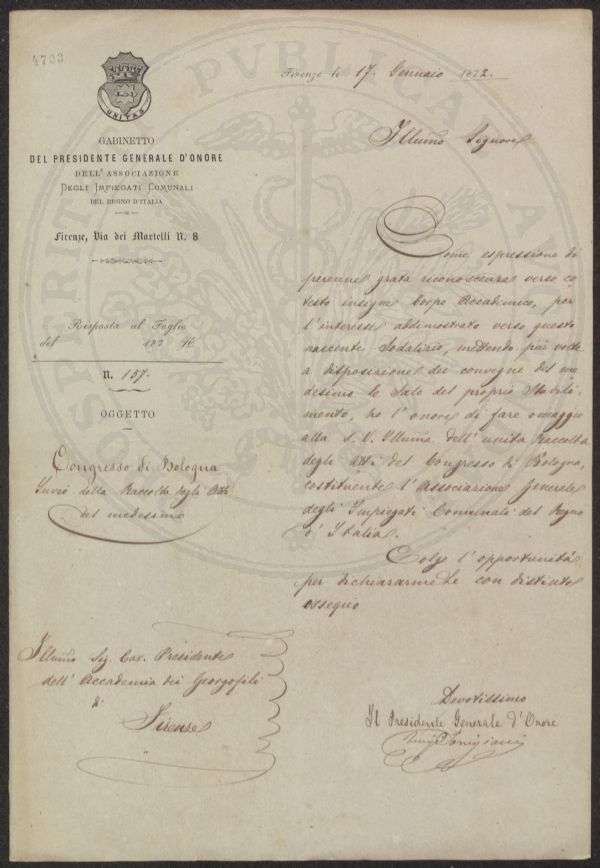 4703
UNITAS
GABINETTO
DEL PRESIDENTE GENERALE D'ONORE
DELL'ASSOCIAZIONE
DEGLI IMPIEGATI COMUNALI
DEL REGNO D'ITALIA
Firenze, Via dei Martelli N. 8
Risposta al Foglio
del 187 N.
N. 157.
OGGETTO
Congresso di Bologna
Invio della Raccolta degli Atti
del medesimo
Firenze li 17. Gennaio 1872.
Illumo Signore
Come espressione di
perenne grata riconoscenza verso co
testo insigne Corpo Accademico, per
l'interesse addimostrato verso questo
nascente Sodalizio, mettendo più volte
a disposizione dei convegni del me
desimo le Sale del proprio Stabili
mento, ho l'onore di fare omaggio
alla S. V. Illuma dell'unita Raccolta
degli atti del Congresso di Bologna,
costituente l'Associazione Generale
degli Impiegati Comunali del Regno
d'Italia.
Colgo l'opportunità
per dichiararmeLe con distinto
ossequio
Illumo Sig. Cav. Presidente
dell'Accademia dei Georgofili
di
Firenze
Devotissimo
Il Presidente Generale d'Onore
PVBLICA